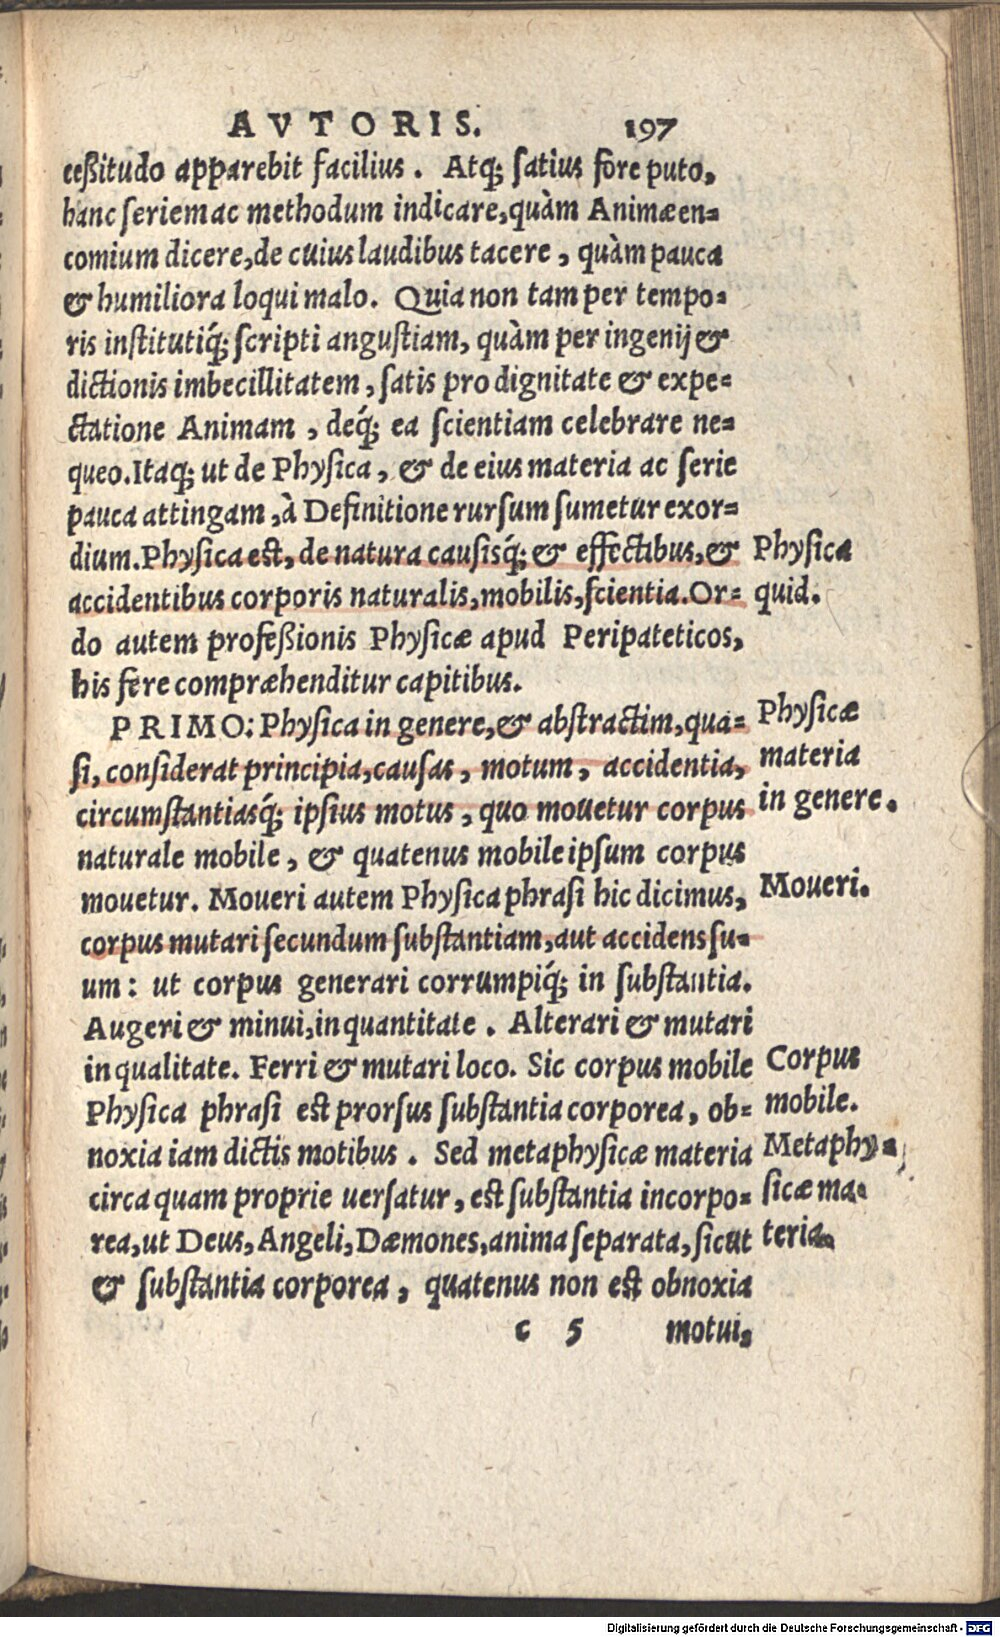 AVTORIS. 197
ceßitudo apparebit facilius. Atq́; satius fore puto,
hanc seriem ac methodum indicare, quàm Animæ en=
comium dicere, de cuius laudibus tacere, quàm pauca
& humiliora loqui malo. Quia non tam per tempo=
ris institutiq́; scripti angustiam, quàm per ingenij &
dictionis imbecillitatem, satis pro dignitate & expe=
ctatione Animam, deq́; ea scientiam celebrare ne=
queo. Itaq; ut de Physica, & de eius materia ac serie
pauca attingam, à Definitione rursum sumetur exor=
dium. Physica est, de natura causisq́; & effectibus, &
accidentibus corporis naturalis, mobilis, scientia. Or=
do autem profeßionis Physicæ apud Peripateticos,
his fere compræhenditur capitibus.
PRIMO: Physica in genere, & abstractim, qua=
si, considerat principia, causas, motum, accidentia,
circumstantiasq́; ipsius motus, quo mouetur corpus
naturale mobile, & quatenus mobile ipsum corpus
mouetur. Moueri autem Physica phrasi hic dicimus,
corpus mutari secundum substantiam, aut accidens su=
um: ut corpus generari corrumpiq́; in substantia.
Augeri & minui, in quantitate. Alterari & mutari
in qualitate. Ferri & mutari loco. Sic corpus mobile
Physica phrasi est prorsus substantia corporea, ob=
noxia iam dictis motibus. Sed metaphysicæ materia
circa quam proprie uersatur, est substantia incorpo=
rea, ut Deus, Angeli, Dæmones, anima separata, sicut
& substantia corporea, quatenus non est obnoxia
c 5 motui,
Physica
quid.
Physicæ
materia
in genere.
Moueri.
Corpus
mobile.
Metaphy=
sicæ ma=
teria.
Digitalisierung gefördert durch die Deutsche Forschungsgemeinschaft - DFG